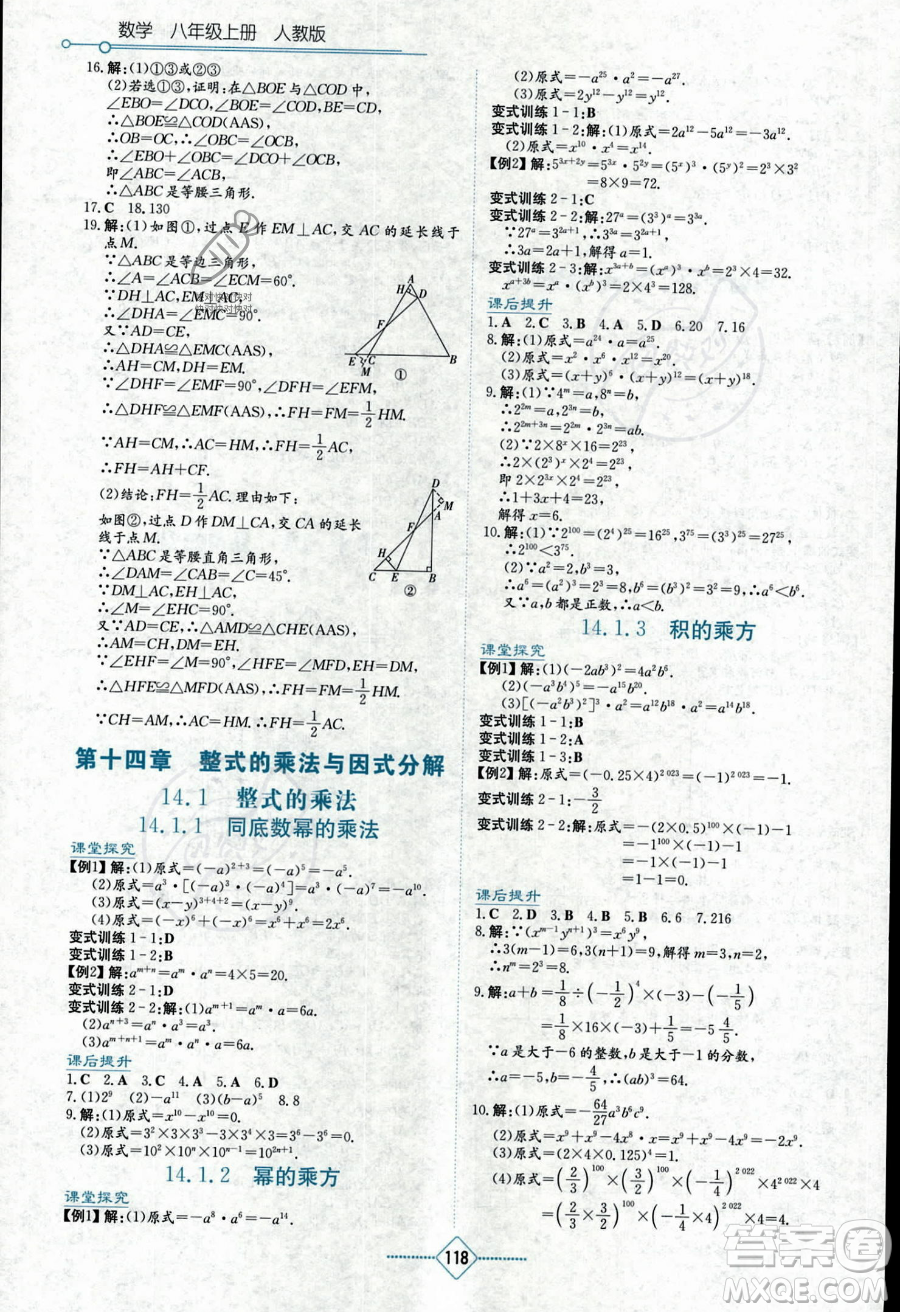 数学 八年级上册 人教版
16. 解:(1)①③或②③
(2)若选①③,证明:在△BOE与△COD中,
∠EBO=∠DCO,∠BOE=∠COD,BE=CD,
∴△BOE≌△COD(AAS),
∴OB=OC,∴∠OBC=∠OCB,
∴∠EBO+∠OBC=∠DCO+∠OCB,
即∠ABC=∠ACB,
∴△ABC是等腰三角形.
17. C 18. 130
19. 解:(1)如图①,过点E作EM⊥AC,交AC的延长线于
点M.
∵△ABC是等边三角形,
∴∠A=∠ACB=∠ECM=60°.
∵DH⊥AC,EM⊥AC,
∴∠AHD=∠CME=90°.
又∵AD=CE,
∴△DHA≌△EMC(AAS),
∴AH=CM,DH=EM.
∵∠DHF=∠EMF=90°,∠DFH=∠EFM,
∴△DHF≌△EMF(AAS),∴FH=FM=1/2HM.
∵AH=CM,∴HM=AC,∴FH=1/2AC,
∴FH=AH+CF.
(2)结论:FH=1/2AC.理由如下:
如图②,过点D作DM⊥CA,交CA的延长
线于点M.
∵△ABC是等腰直角三角形,
∴∠DAM=∠CAB=∠C=45°.
∵DM⊥AC,EH⊥AC,
∴∠M=∠EHC=90°.
又∵AD=CE,∴△DMA≌△CHE(AAS),
∴AM=CH,DM=EH.
∵∠M=∠EHF=90°,∠DFM=∠EFH,
∴△HFE≌△MFD(AAS),∴FH=FM=1/2HM.
∵CH=AM,∴AC=HM,∴FH=1/2AC.
①
②
第十四章 整式的乘法与因式分解
14.1 整式的乘法
14.1.1 同底数幂的乘法
课堂探究
【例1】解:(1)原式=(-a)²⁺³=(-a)⁵=-a⁵.
(2)原式=a³·[(-a)³·(-a)²]=a³·(-a⁵)=-a⁸.
(3)原式=(-x)³⁺⁴⁺²=(-x)⁹=-x⁹.
(4)原式=(-x)⁶+(-x)⁶=x⁶+x⁶=2x⁶.
变式训练1-1:D
【例2】解:aᵐ⁺ⁿ=aᵐ·aⁿ=4×5=20.
变式训练2-1:D
变式训练2-2:解:(1)aᵐ⁺¹=aᵐ·a=6a.
(2)aⁿ⁺³=aⁿ·a³=5a³.
(3)aᵐ⁺ⁿ⁺¹=aᵐ·aⁿ·a=6×5×a=30a.
课后提升
1. C 2. A 3. D 4. A 5. A 6. D
7. (1)27 (2)-a¹¹ (3)(a-b)⁶ 8. 8
9. 解:(1)原式=x¹⁰-x¹⁰=0.
(2)原式=3²×3×3³-3×3²×3³=0.
(3)原式=10²×10ⁿ×10ⁿ⁻¹=10²ⁿ⁺¹.
14.1.2 幂的乘方
课堂探究
【例1】解:(1)原式=-a⁸·a⁶=-a¹⁴.
(2)原式=-a²⁵·a²=-a²⁷.
(3)原式=2y¹²-y¹²=y¹².
变式训练1-1:B
变式训练1-2:解:(1)原式=2a¹²-5a¹²=-3a¹².
(2)原式=x¹⁰·x⁴=x¹⁴.
【例2】解:5³ˣ⁺²ʸ=5³ˣ·5²ʸ=(5ˣ)³·(5ʸ)²=2³×3²
=8×9=72.
变式训练2-1:C
变式训练2-2:解:27ᵃ=(3³)ᵃ=3³ᵃ.
∵27ᵃ=3²ᵃ⁺¹,∴3³ᵃ=3²ᵃ⁺¹,
∴3a=2a+1,解得a=1.
变式训练2-3:解:xᵃ⁺ᵇ=xᵃ·xᵇ=2×16=32.
x³ᵃ⁺ᵇ=x³ᵃ·xᵇ=(xᵃ)³·xᵇ=2³×16=128.
课后提升
1. A 2. C 3. B 4. A 5. D 6. 20 7. 16
8. 解:(1)原式=a²⁴·a-a²⁵=a²⁵-a²⁵=0.
(2)原式=x²·x⁶·x¹²=x²⁰.
(3)原式=(x+y)⁶·(x+y)¹²=(x+y)¹⁸.
9. 解:(1)∵4ᵐ=a,8ⁿ=b,
∴2²ᵐ=a,2³ⁿ=b,
∴2²ᵐ⁺³ⁿ=2²ᵐ·2³ⁿ=ab.
(2)∵2×8ˣ×16=2²³,
∴2×(2³)ˣ×2⁴=2²³,
即2×2³ˣ×2⁴=2²³,
∴1+3x+4=23,
解得x=6.
10. 解:(1)∵2¹⁰⁰=(2⁴)²⁵=16²⁵,3⁷⁵=(3³)²⁵=27²⁵,
∴2¹⁰⁰<3⁷⁵.
(2)∵a²=2,b³=3,
∴a⁶=(a²)³=2³=8,b⁶=(b³)²=3²=9,∴a⁶<b⁶.
又∵a,b都是正数,∴a<b.
14.1.3 积的乘方
课堂探究
【例1】解:(1)(-2ab³)²=4a²b⁶.
(2)(-a³b⁴)⁵=-a¹⁵b²⁰.
(3)[(-a²b³)²]³=(a⁴b⁶)³=a¹²b¹⁸.
变式训练1-1:B
变式训练1-2:A
变式训练1-3:B
【例2】解:原式=(-0.25×4)²⁰²³=(-1)²⁰²³=-1.
变式训练2-1:-3/2
变式训练2-2:解:原式=-(2×0.5)¹⁰⁰+(-1)⁹⁹
=-1¹⁰⁰+(-1)⁹⁹
=-1-1=-2.
课后提升
1. C 2. D 3. A 4. A 5. B 6. 6 7. 216
8. 解:∵(xᵐ⁻¹yⁿ⁺¹)³=x⁶y⁹,
∴3(m-1)=6,3(n+1)=9,解得m=3,n=2,
∴nᵐ=2³=8.
9. 解:a+b=1/8÷(-1/2)⁴×(-9)-(-1/5)
=1/8×16×(-9)-(-1/5).
∵a是大于-6的整数,b是大于-1的分数,
∴a=-5,b=-4/5,∴a·b=4.
10. 解:(1)原式=-64/27a³b⁶c⁹.
(2)原式=x⁹+x⁹-4x⁹=-2x⁹.
(3)原式=(2×4×0.125)⁴=1.
(4)原式=(2/3)¹⁰⁰×(3/2)¹⁰⁰×(1/4)²⁰²²×4²⁰²²
=(2/3×3/2)¹⁰⁰×(1/4×4)²⁰²²=1×1=1.
118
答案圈
MXQE.COM